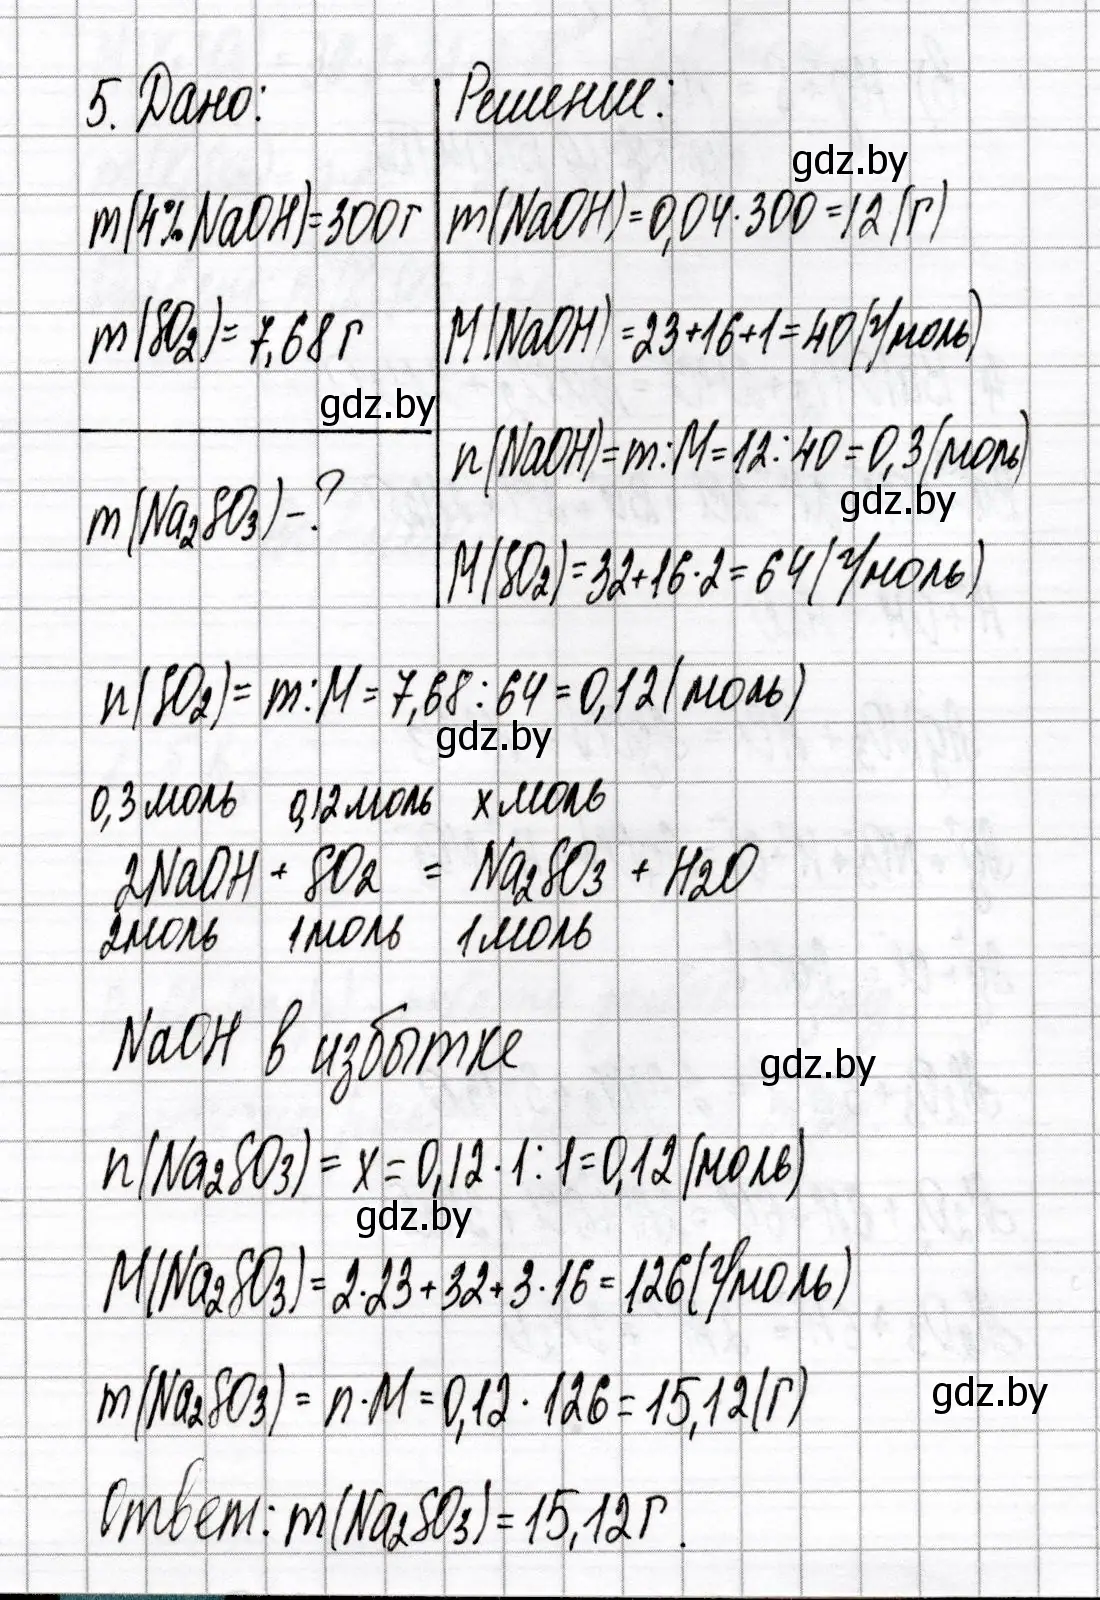 5. Дано:
Решение:
gdz.by
m(4% NaOH)=300г
m(NaOH)=0,04·300=12(г)
m(SO₂)=7,68г
M(NaOH)=23+16+1=40(г/моль)
gdz.by
n(NaOH)=m:M=12:40=0,3(моль)
gdz.by
m(Na₂SO₃)-?
M(SO₂)=32+16·2=64(г/моль)
n(SO₂)=m:M=7,68:64=0,12(моль)
gdz.by
0,3моль 0,12моль x моль
2NaOH + SO₂ = Na₂SO₃ + H₂O
2моль 1моль 1моль
NaOH в избытке
gdz.by
n(Na₂SO₃)=x=0,12·1:1=0,12(моль)
gdz.by
M(Na₂SO₃)=2·23+32+3·16=126(г/моль)
m(Na₂SO₃)=n·M=0,12·126=15,12(г)
gdz.by
Ответ: m(Na₂SO₃)=15,12г.